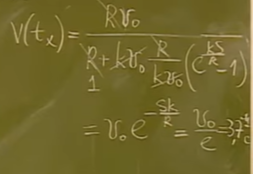 V(tₓ) = Rv₀ / (R + kv₀ R/kv₀ (e^(kS/R) - 1))
1
= v₀ e^(-Sk/R) = v₀/e = 3,7